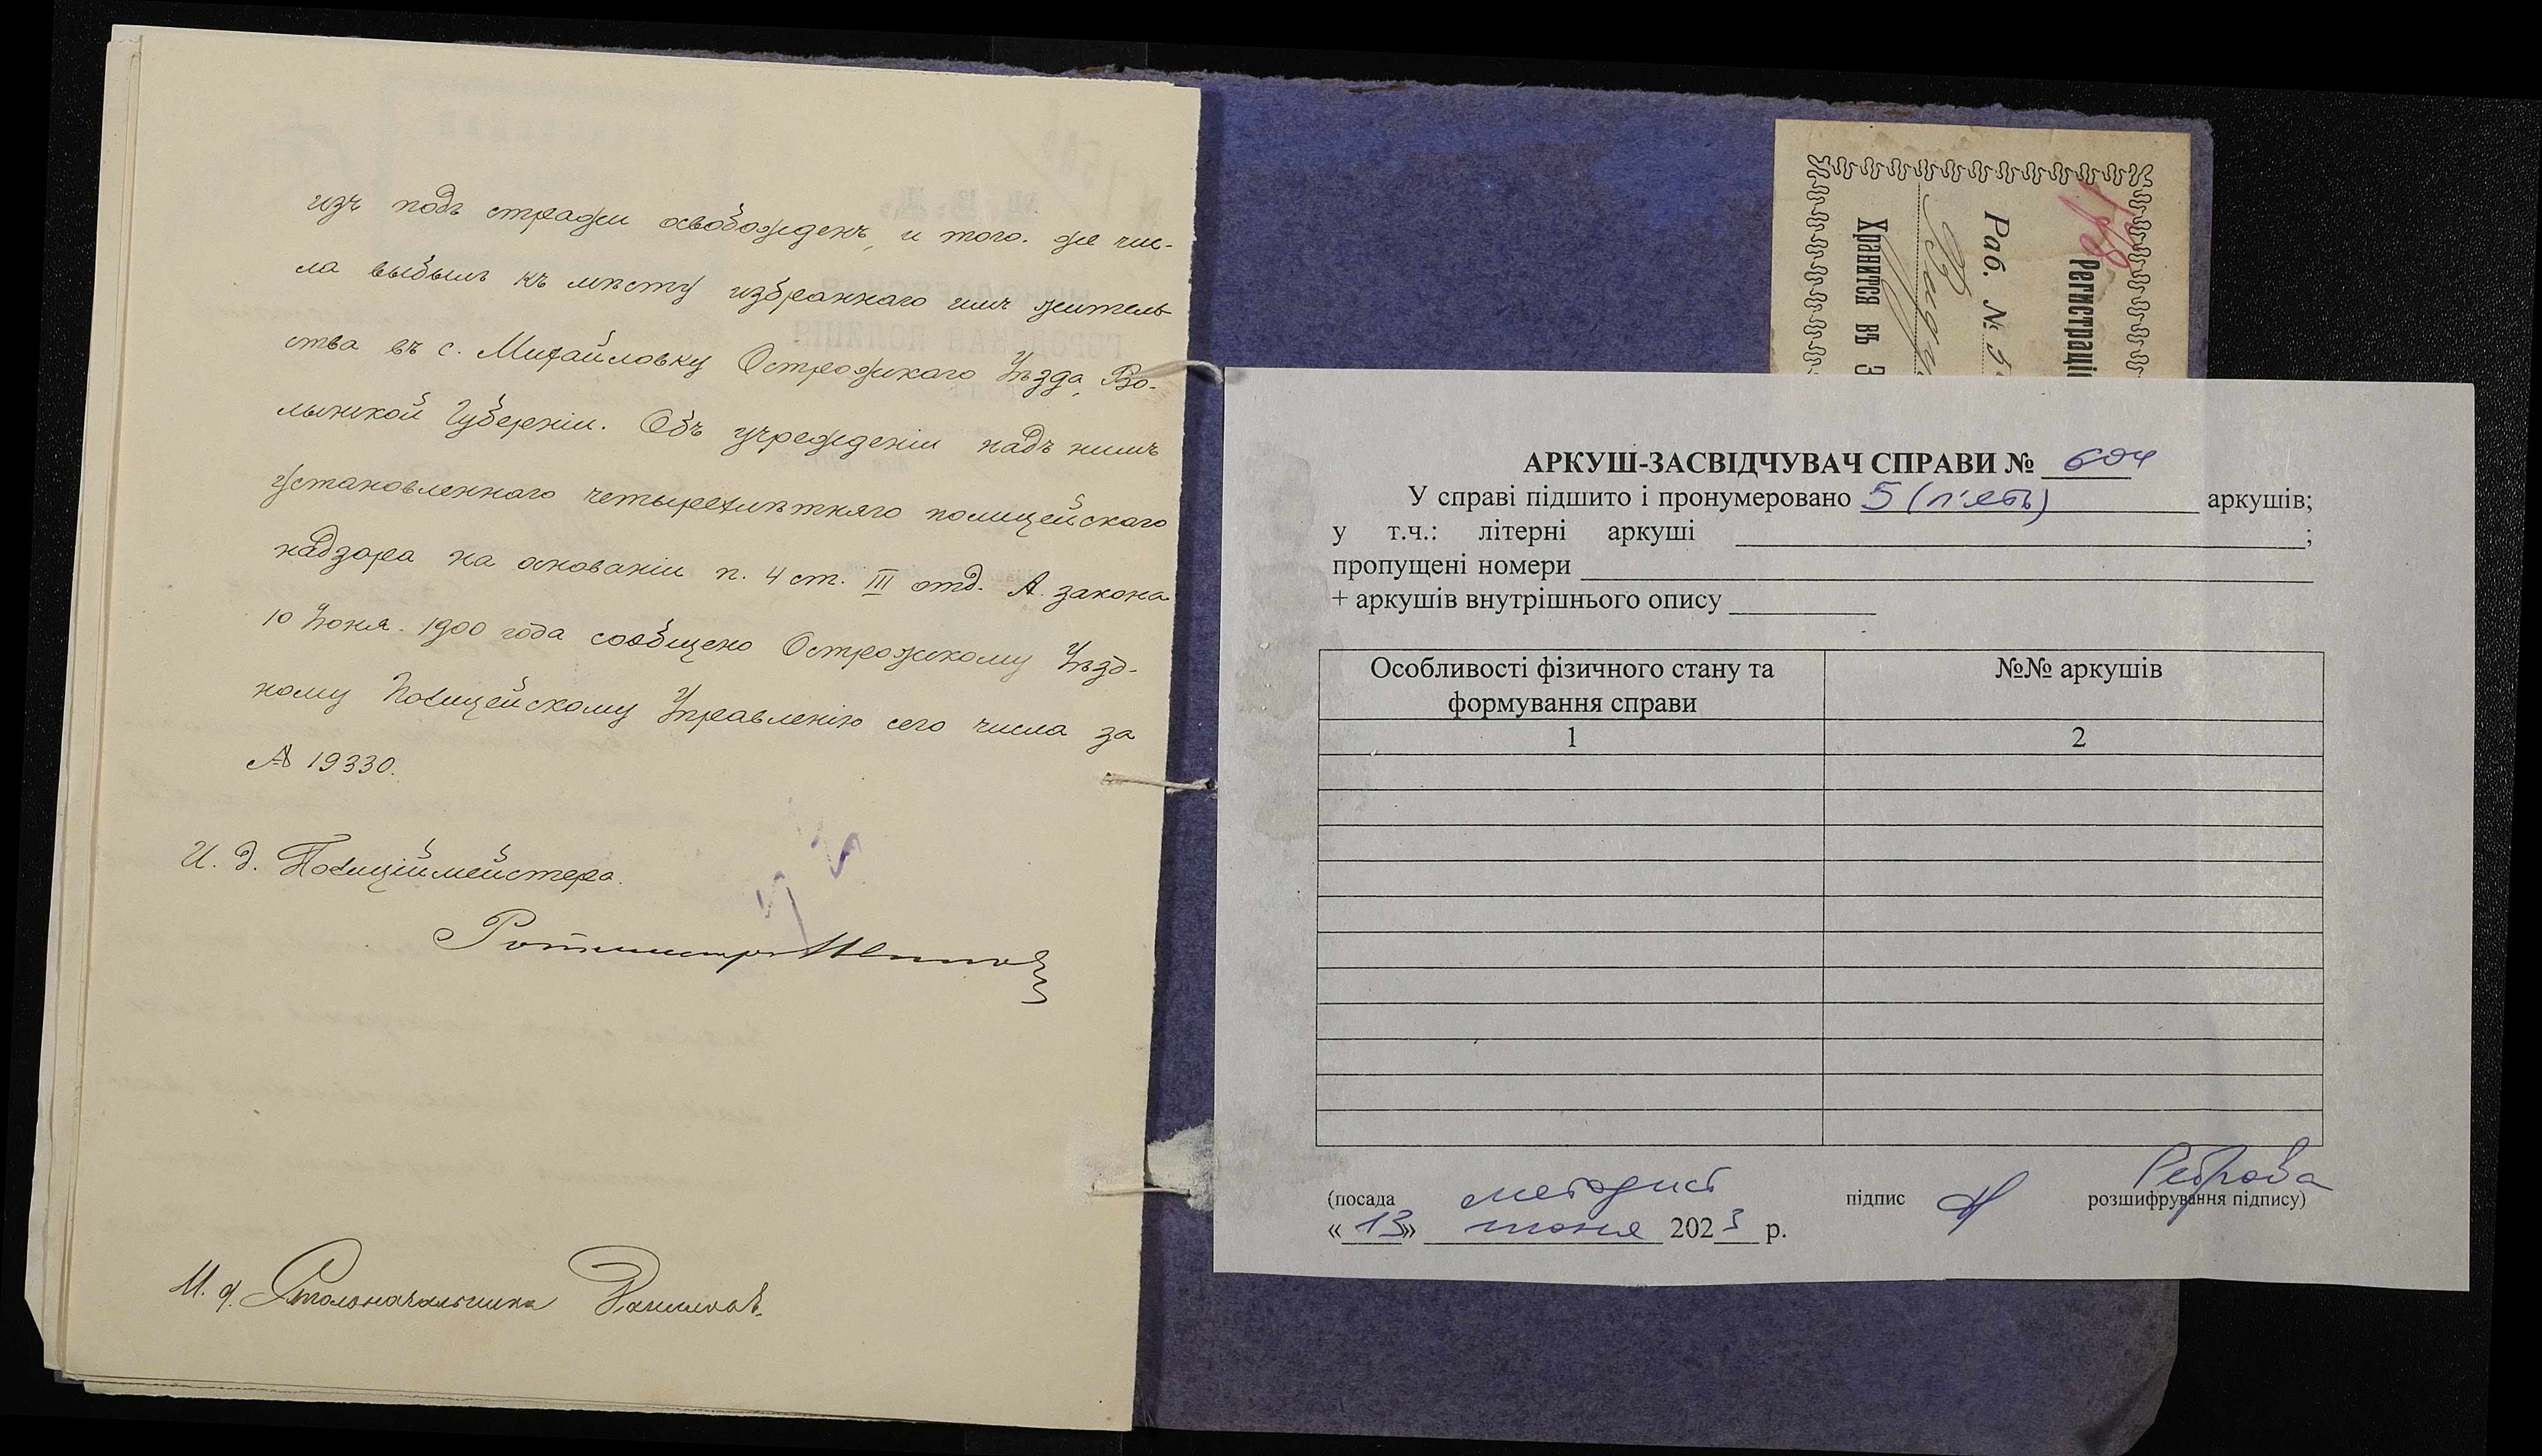 изъ подъ стражи освобожденъ, и того. же чис-
ла выбылъ къ мѣсту избраннаго имъ житель
ства въ с. Михайловку Острожскаго Уѣзда, Во-
лынской Губерніи. Объ учрежденіи надъ нимъ
установленнаго четырехлѣтняго полицейскаго
надзора на основаніи п. 4 ст. III отд. А. закона
10 Іюня. 1900 года сообщено Острожскому Уѣзд-
ному Полицейскому Управленію сего числа за
№ 19330.
И. д. Полиціймейстера.
Ротмистръ
И. д. Столоначальника Данилов.
178
Регистраці
Раб. № 5
Хранится въ З
АРКУШ-ЗАСВІДЧУВАЧ СПРАВИ № 604
У справі підшито і пронумеровано 5 (п'ять) аркушів;
у т.ч.: літерні аркуші ;
пропущені номери
+ аркушів внутрішнього опису
Особливості фізичного стану та №№ аркушів
формування справи
1 2
методист Реброва
(посада підпис розшифрування підпису)
«13» июня 2023 р.